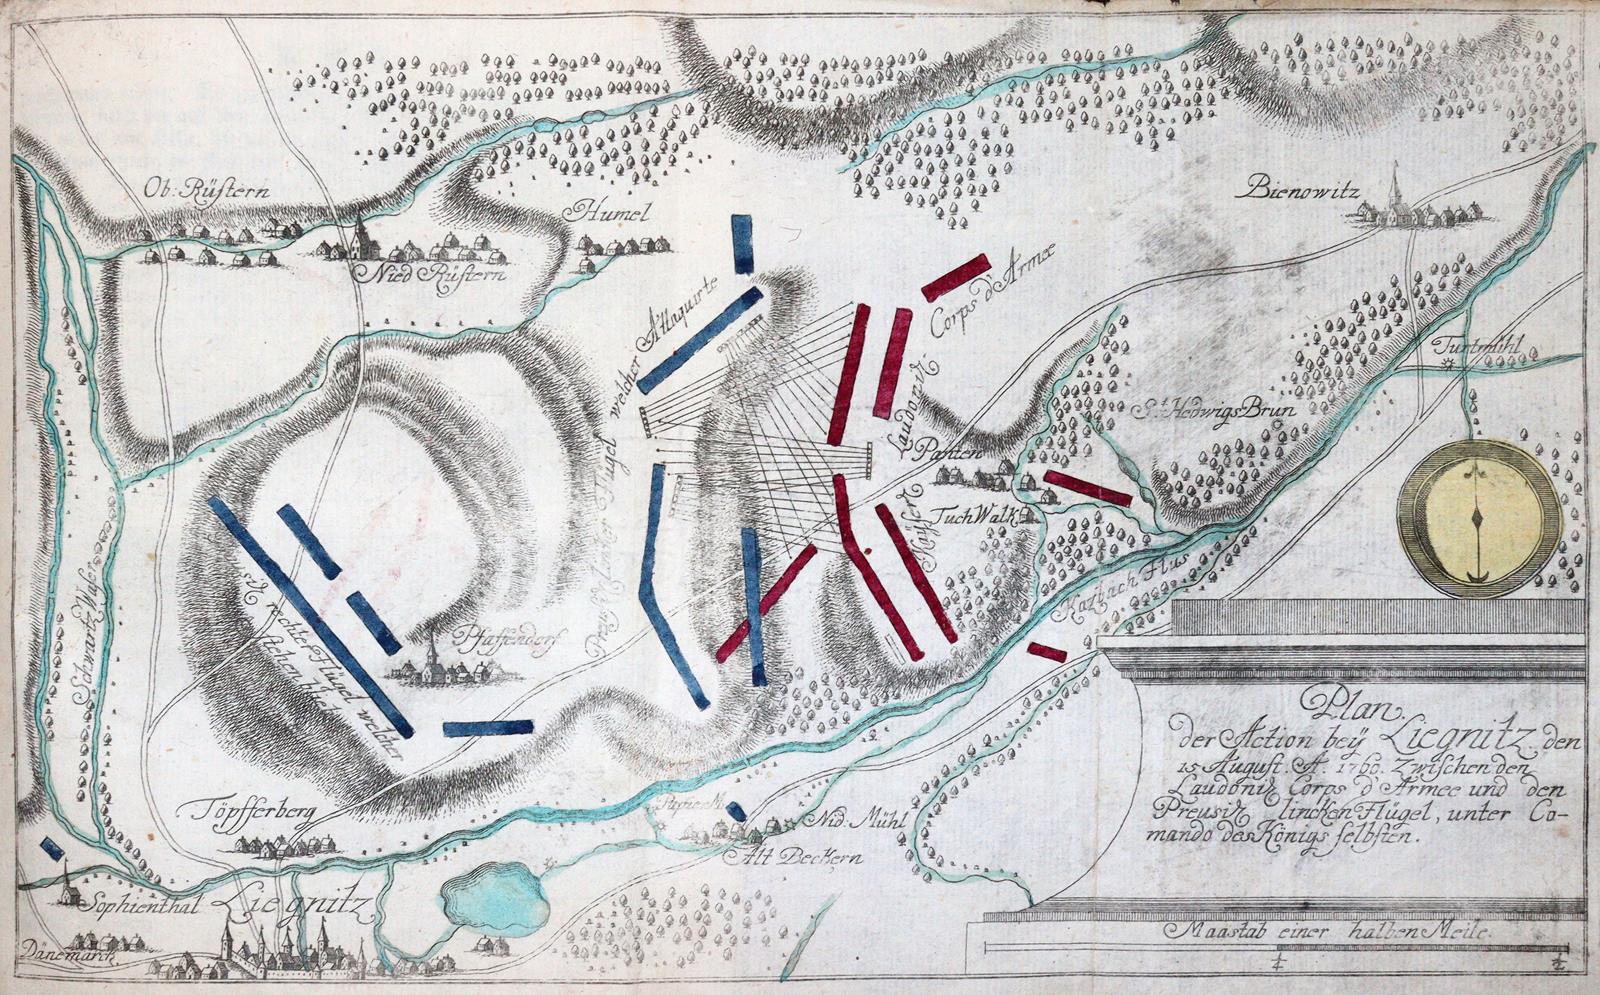 Ob: Rüstern
Nied Rüstern
Humel
Bienowitz
Turtmühl
St Hedwigs Brun
Corps d'Armee
Laudonis
Kayser
Panten
Tuch Walk
Katzbach Flus
Preus lincker Flügel welcher Attaquirte
rechter Flügel welcher
stehen blieb
Pfaffendorf
Schwartz Waser
Töpfferberg
Papier M.
Nid. Mühl
Alt Beckern
Sophienthal
Liegnitz
Dänemarck.
Plan.
der Action beÿ Liegnitz den
15 August. A. 1760. Zwischen den
Laudonis Corps d'Armee und den
Preusis lincken Flügel, unter Co-
mando des Königs selbsten.
Maastab einer halben Meile.
1/4 1/2